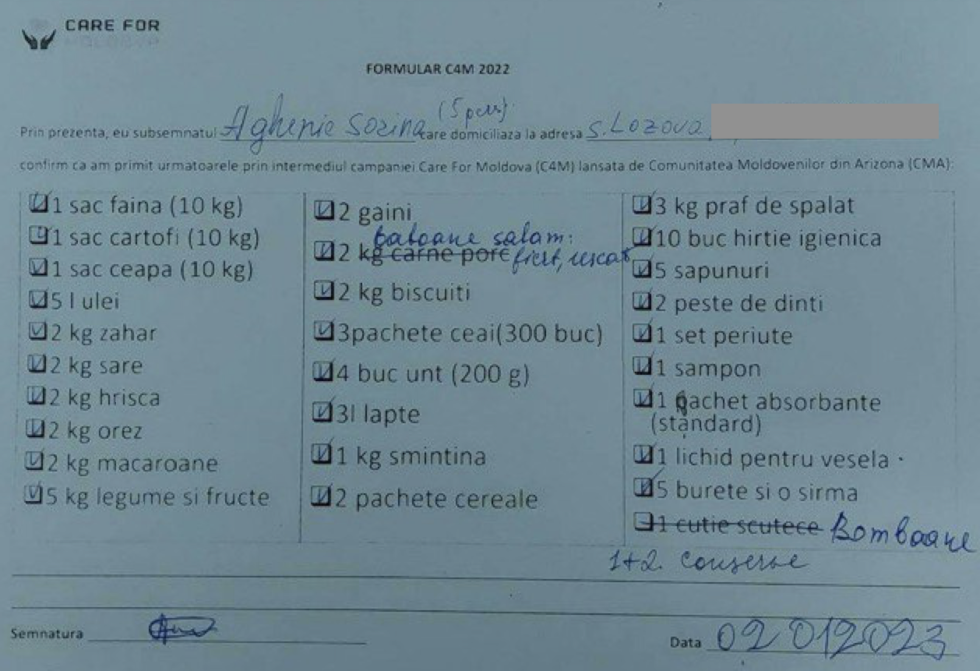 CARE FOR
MOLDOVA
FORMULAR C4M 2022
(5 pers)
Prin prezenta, eu subsemnatul Aghenie Sorina care domiciliaza la adresa s. Lozova,
confirm ca am primit urmatoarele prin intermediul campaniei Care For Moldova (C4M) lansata de Comunitatea Moldovenilor din Arizona (CMA):
1 sac faina (10 kg)
1 sac cartofi (10 kg)
1 sac ceapa (10 kg)
5 l ulei
2 kg zahar
2 kg sare
2 kg hrisca
2 kg orez
2 kg macaroane
5 kg legume si fructe
2 gaini
batoane salam:
2 kg carne porc fiert, uscat
2 kg biscuiti
3pachete ceai(300 buc)
4 buc unt (200 g)
3l lapte
1 kg smintina
2 pachete cereale
3 kg praf de spalat
10 buc hirtie igienica
5 sapunuri
2 peste de dinti
1 set periute
1 sampon
1 pachet absorbante
(standard)
1 lichid pentru vesela
5 burete si o sirma
1 cutie scutece Bomboane
1+2. conserve
Semnatura
Data 02 01 2023